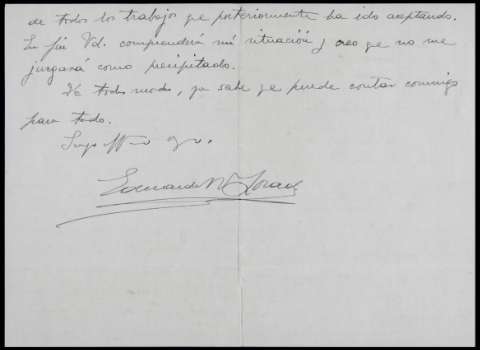 de todos los trabajos qe posteriormente ha ido aceptando.
En fin Vd. comprenderá mi situación y creo qe no me
juzgará como precipitado.
De todos modos, ya sabe qe puede contar conmigo
para todo.
Suyo affmo
Eduardo M.